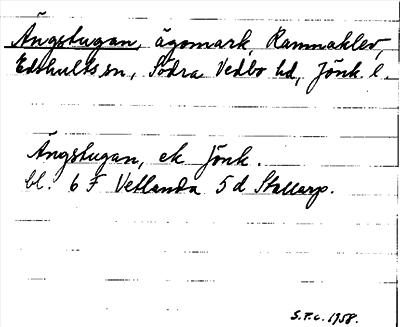 Ängstugan, ägomark, Ramnaklev,
Edshults sn, Södra Vedbo hd, Jönk. l.
Ängstugan, ek Jönk.
bl. 6 F Vetlanda 5 d Stallarp.
S.F.c. 1958.